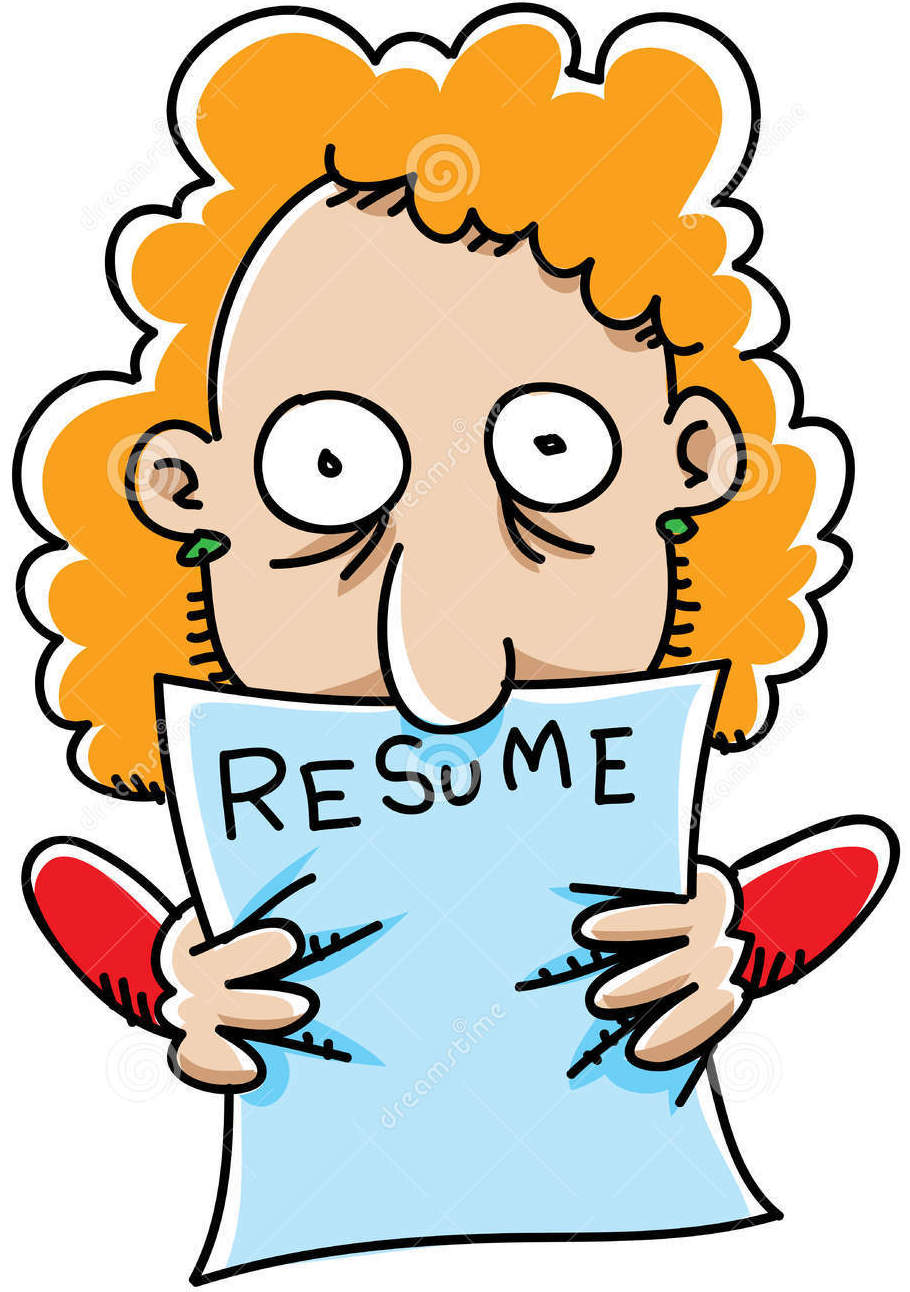 RESUME
dreamstime
dreamstime
dreamstime
dreamstime
dreamstime
dreamstime